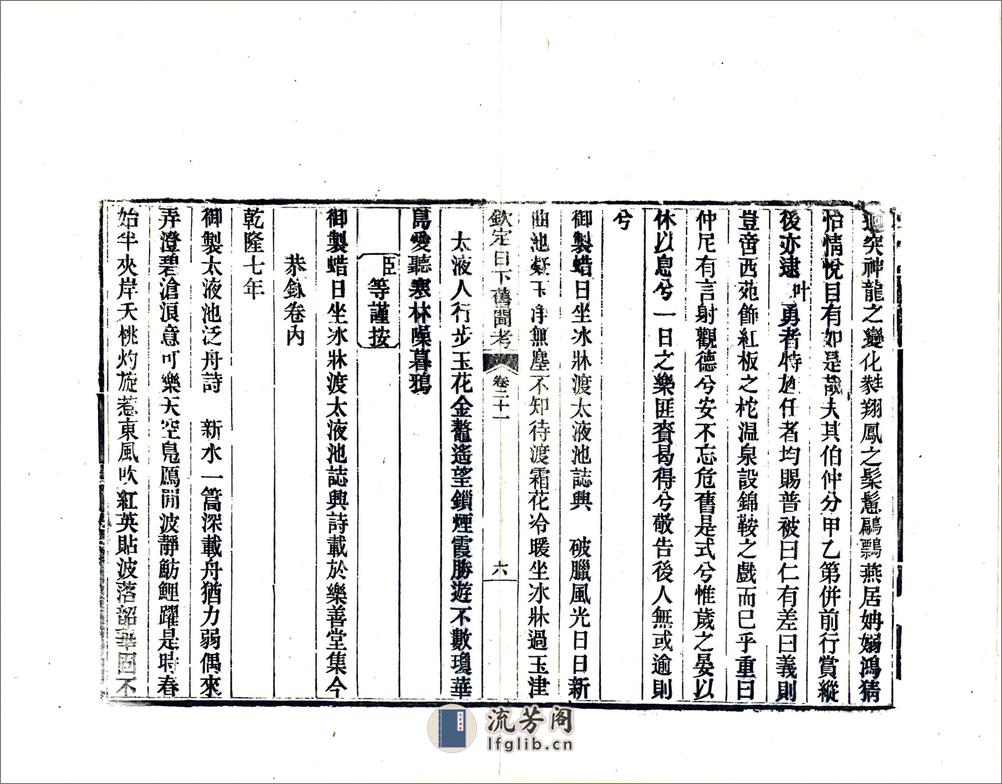 突神龍之變化粲翔鳳之鬈鬈鷸鸇燕居姌嫋鴻猜
怡情悅目有如是哉夫其伯仲分甲乙第併前行賞縱
後亦逮叶勇者特旌任者均賜普被曰仁有差曰義則
豈啻西苑飾紅板之柁温泉設錦鞍之戲而巳乎重曰
仲尼有言射觀德兮安不忘危舊是式兮惟歲之晏以
休以息兮一日之樂匪賚曷得兮敬告後人無或逾則
兮
御製蜡日坐冰牀渡太液池誌興 破臘風光日日新
曲池凝玉淨無塵不知待渡霜花冷暖坐冰牀過玉津
欽定日下舊聞考 卷二十一 六
太液人行步玉花金鼇遙望鎖煙霞勝遊不數瓊華
島愛聽寒林噪暮鴉
臣等謹按
御製蜡日坐冰牀渡太液池誌興詩載於樂善堂集今
恭錄卷内
乾隆七年
御製太液池泛舟詩 新水一篙深載舟猶力弱偶來
弄澄碧滄浪意可樂天空鳧鴈閒波靜魴鯉躍是時春
始半夾岸夭桃灼旋惹東風吹紅英貼波落韶華固不
流芳阁
lfglib.cn